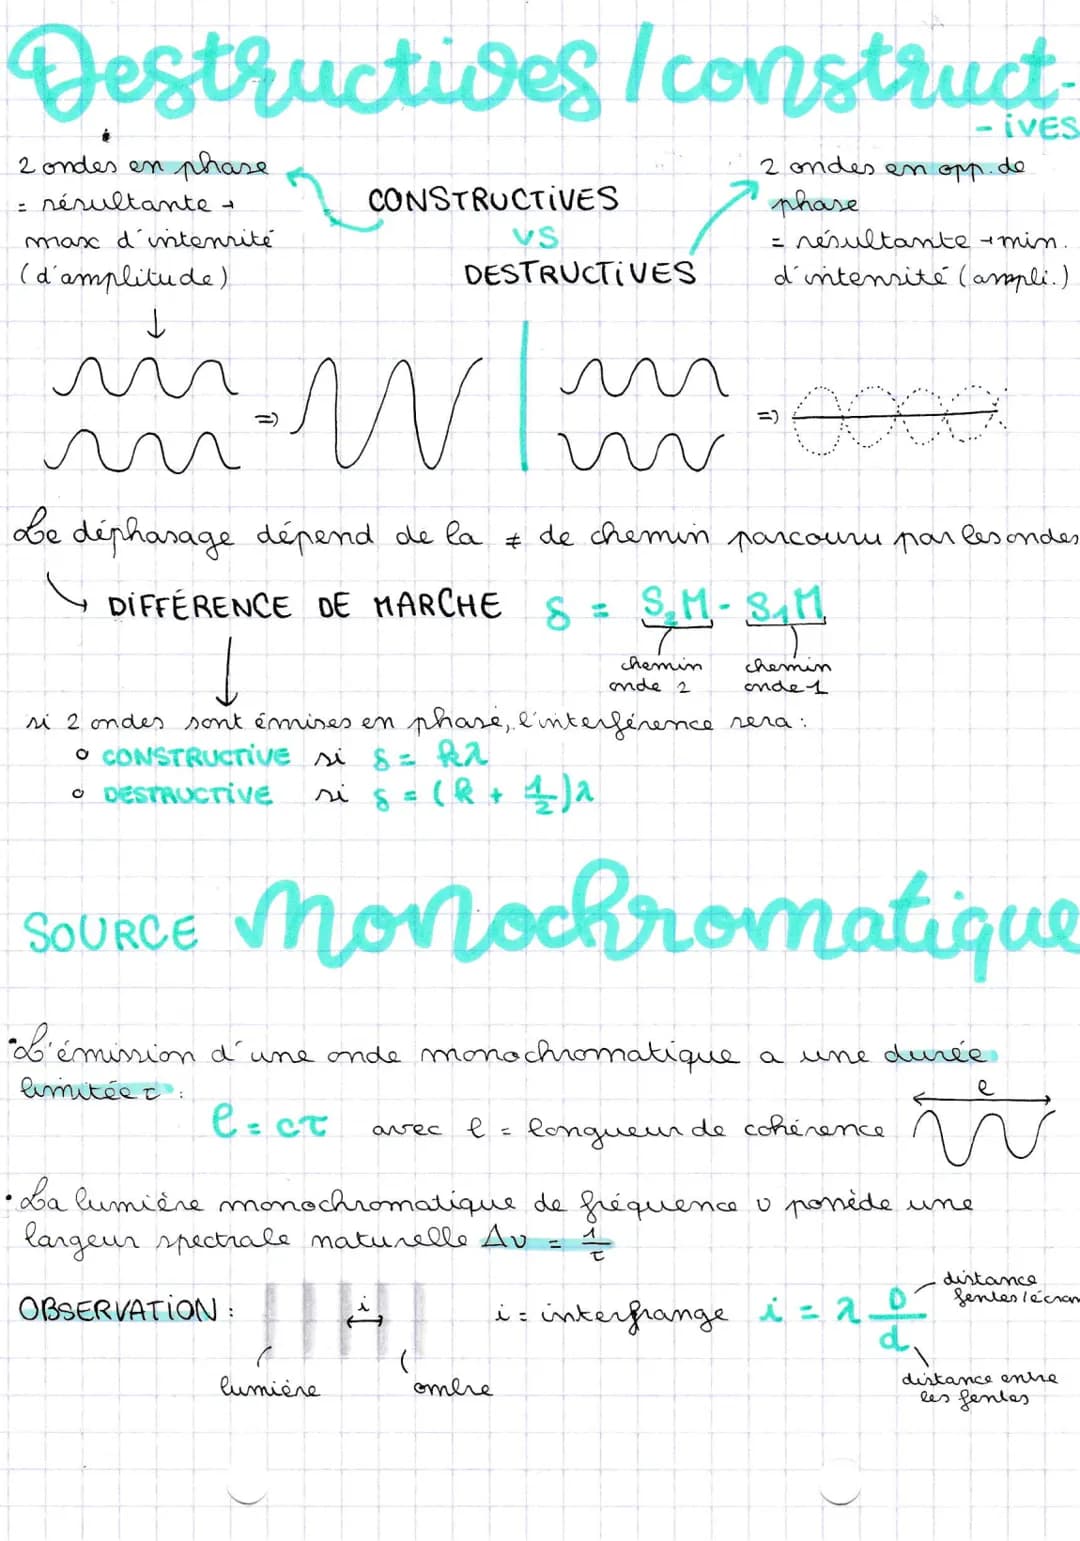 Destructives / construct-
- iVES
2 ondes en phase
= résultante →
max d'intensité
(d'amplitude)
CONSTRUCTiVES
VS
DESTRUCTiVES
2 ondes en opp. de
phase
= résultante → min.
d'intensité (ampli.)
=)
=)
Le déphasage dépend de la ≠ de chemin parcouru par les ondes
DiFFÉRENCE DE MARCHE δ = S₂M - S₁M
chemin
onde 2
chemin
onde 1
si 2 ondes sont émises en phase, l'interférence sera :
○ CONSTRUCTiVE si δ = kλ
○ DESTRUCTiVE si δ = (k + 1/2)λ
SOURCE Monochromatique
• L'émission d'une onde monochromatique a une durée
limitée τ :
l = cτ avec l = longueur de cohérence
l
• La lumière monochromatique de fréquence υ possède une
largeur spectrale naturelle Δυ = 1/τ
OBSERVATiON :
i
i = interfrange i = λ D/d
distance
fentes/écran
distance entre
les fentes
lumière
ombre